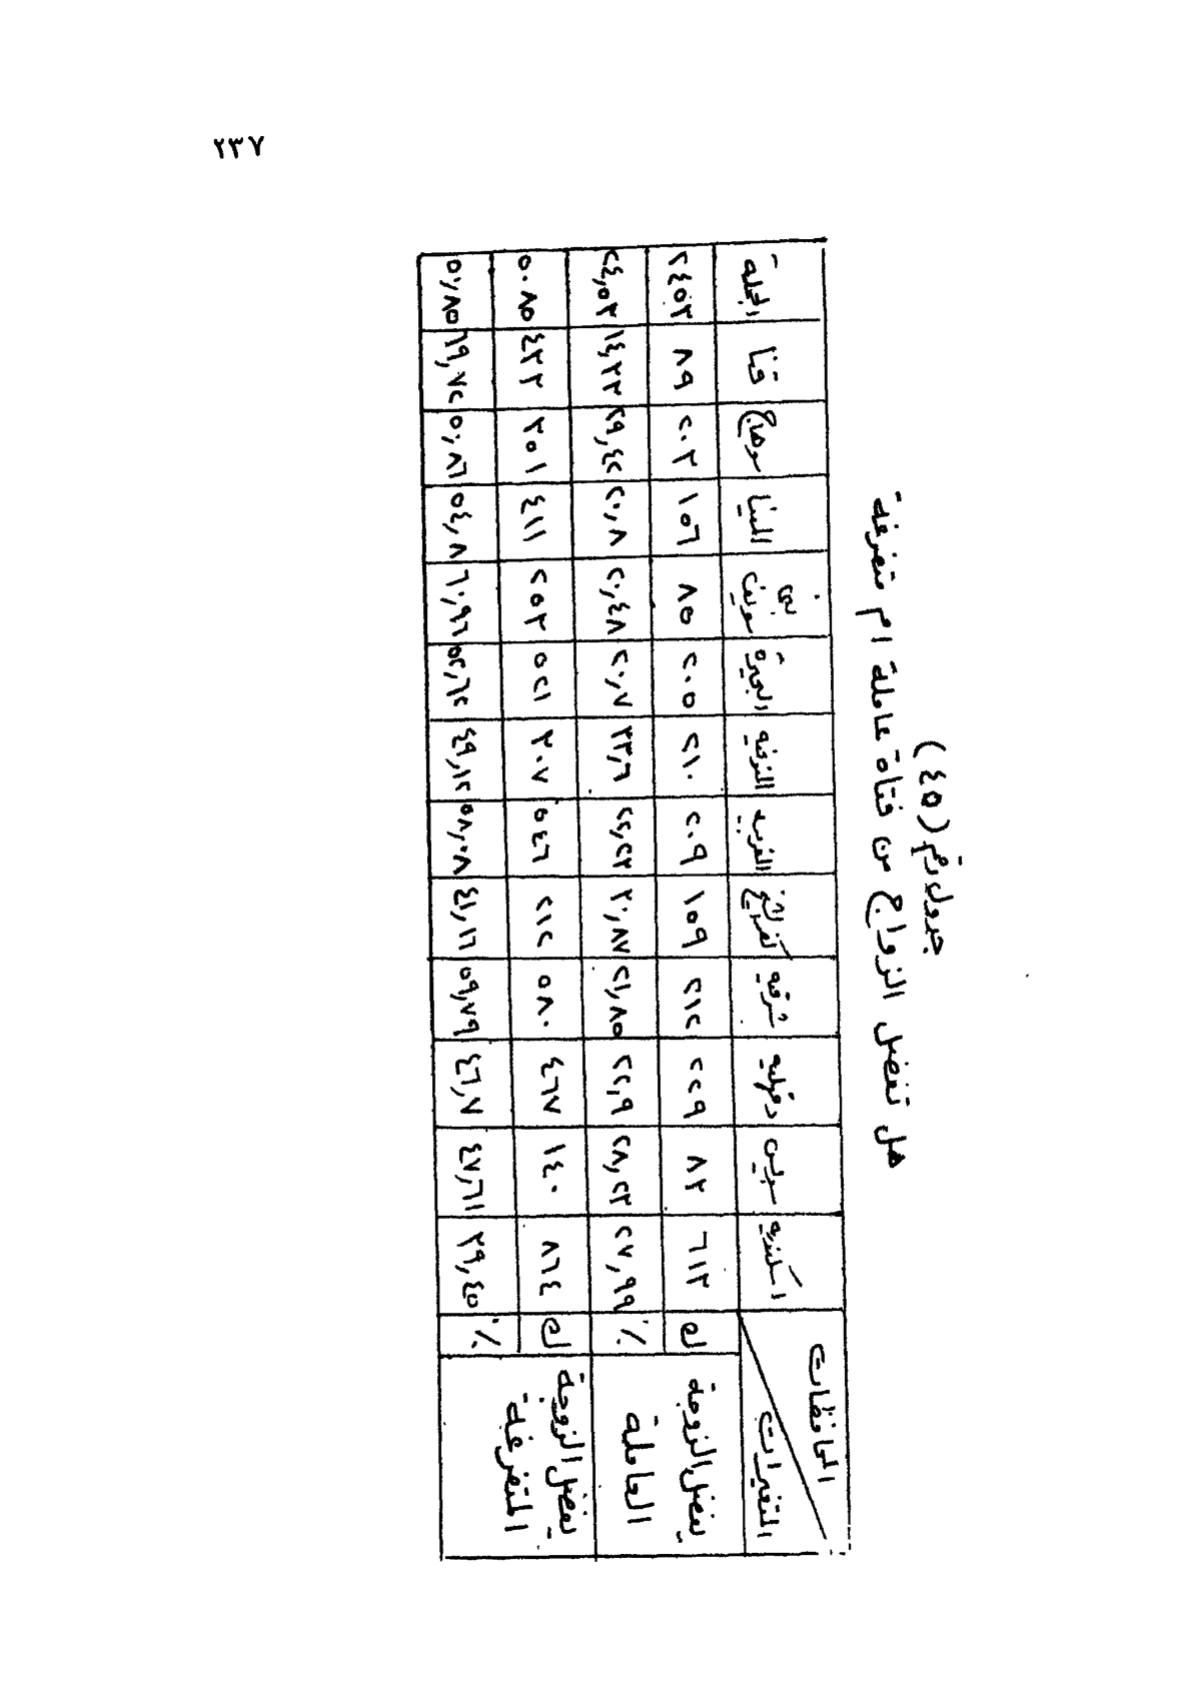 ٢٣٧
جدول رقم (٤٥)
هل تفضل الزواج من فتاة عاملة ام متفرغة
المحافظات
المتغيرات
اسكندريه سويس دقهليه شرقيه كفر الشيخ الغربيه المنوفيه البحيرة بنى سويف المنيا سوهاج قنا الجملة
يفضل الزوجة العاملة
ك ٦١٣ ٨٣ ٢٢٩ ٢١٢ ١٥٩ ٢٠٩ ٢١٠ ٢٠٥ ٨٥ ١٥٦ ٢٠٣ ٨٩ ٢٤٥٣
٪ ٢٧,٩٩ ٢٨,٢٣ ٢٢,٩ ٢١,٨٥ ٣٠,٨٧ ٢٢,٢٣ ٣٣,٦ ٢٠,٧ ٢٠,٤٨ ٢٠,٨ ٢٩,٤٢ ١٤,٣٣ ٢٤,٥٣
يفضل الزوجة المتفرغة
ك ٨٦٤ ١٤٠ ٤٦٧ ٥٨٠ ٢١٢ ٥٤٦ ٣٠٧ ٥٢١ ٢٥٣ ٤١١ ٣٥١ ٤٣٣ ٥٠٨٥
٪ ٣٩,٤٥ ٤٧,٦١ ٤٦,٧ ٥٩,٧٩ ٤١,١٦ ٥٨,٠٨ ٤٩,١٢ ٥٢,٦٢ ٦٠,٩٦ ٥٤,٨ ٥٠,٨٦ ٦٩,٧٢ ٥٠,٨٥